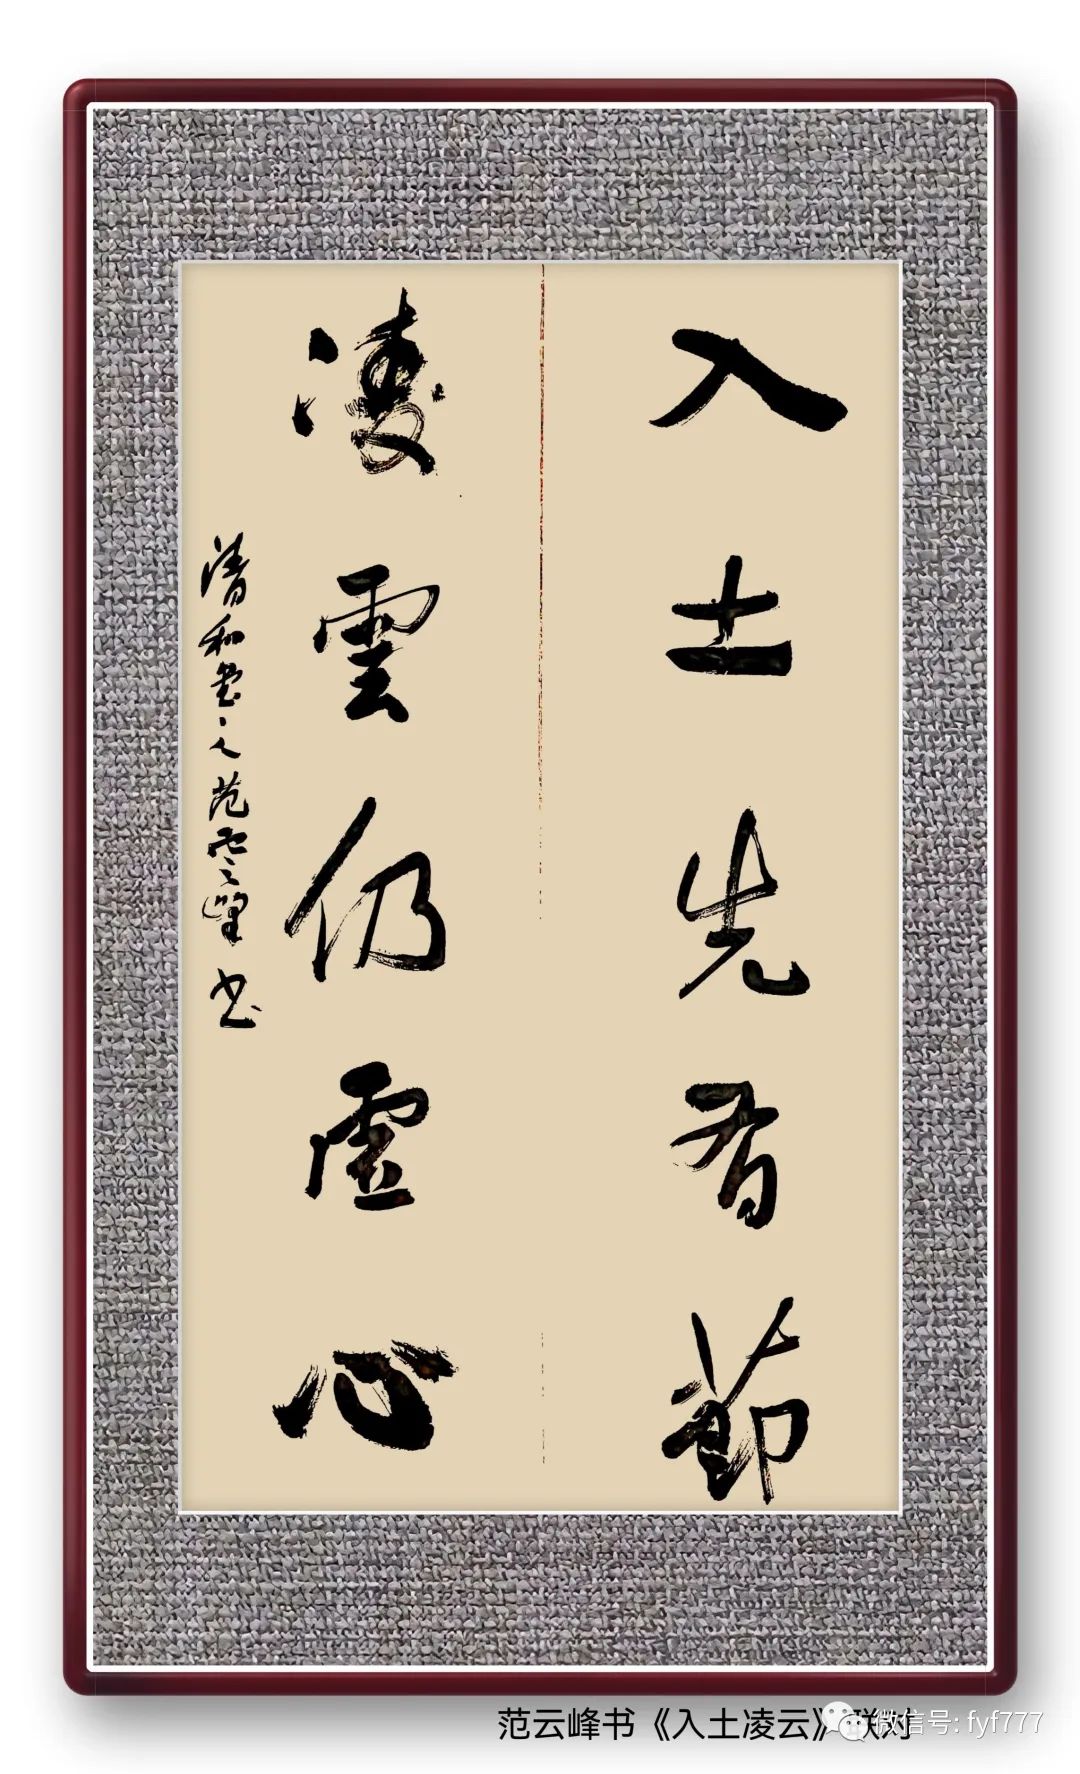 入土先有節
凌雲仍虛心
清和 范雲峰書
范云峰书《入土凌云》联对
微信号: fyf777